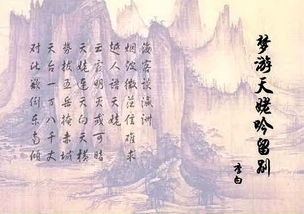 梦游天姥吟留别
李白
海客谈瀛洲
烟波微茫信难求
越人语天姥
云霓明灭或可睹
天姥连天向天横
势拔五岳掩赤城
天台一万八千丈
对此欲倒东南倾